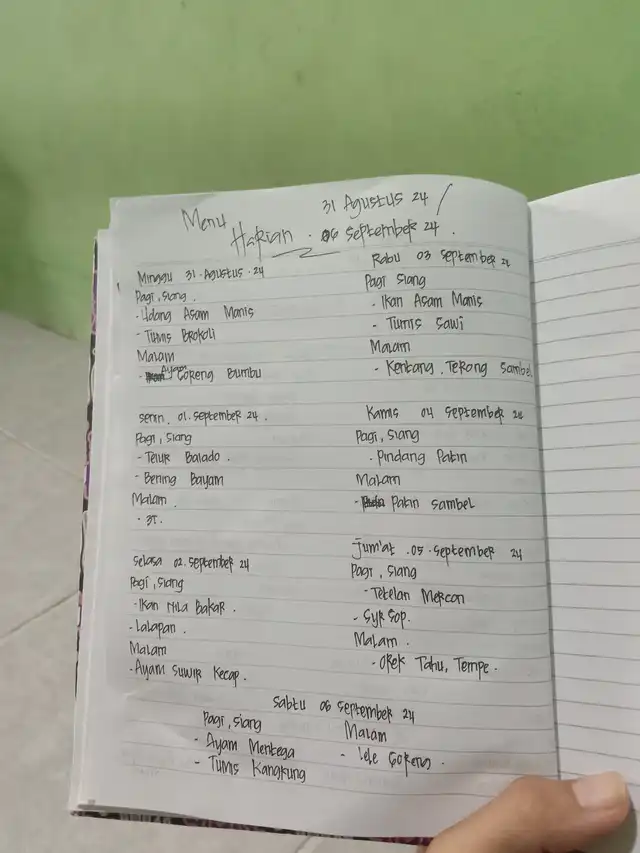 Menu 31 Agustus 24 /
Harian . 06 September 24 .
Minggu 31 . Agustus . 24
Pagi, Siang .
- Udang Asam Manis
- Tumis Brokoli
Malam
- Ayam Goreng Bumbu
Senin . 01 . September 24 .
Pagi, Siang
- Telur Balado .
- Bening Bayam
Malam .
- 3T .
Selasa 02 . September 24
Pagi, Siang
- Ikan Nila Bakar .
- Lalapan .
Malam
- Ayam Suwir Kecap .
Rabu 03 September 24
Pagi Siang
- Ikan Asam Manis
- Tumis Sawi
Malam
- Kentang, Terong Sambel
Kamis 04 September 24
Pagi, Siang
- Pindang Patin
Malam
- Patin Sambel
Jum'at . 05 . September 24
Pagi, Siang
- Tetelan Mercon
- Syr Sop .
Malam .
- Orek Tahu, Tempe .
Sabtu 06 September 24
Pagi, Siang
- Ayam Mentega
- Tumis Kangkung
Malam
- Lele Goreng .